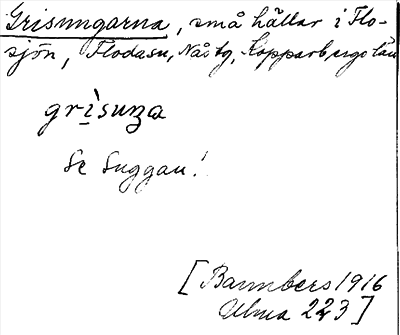 Grisungarna, små hällar i Flo-
sjön, Floda sn, Nås tg, Kopparbergs län
grìsuŋa
Se Suggan!
[Bannbers 1916
Ulma 223]